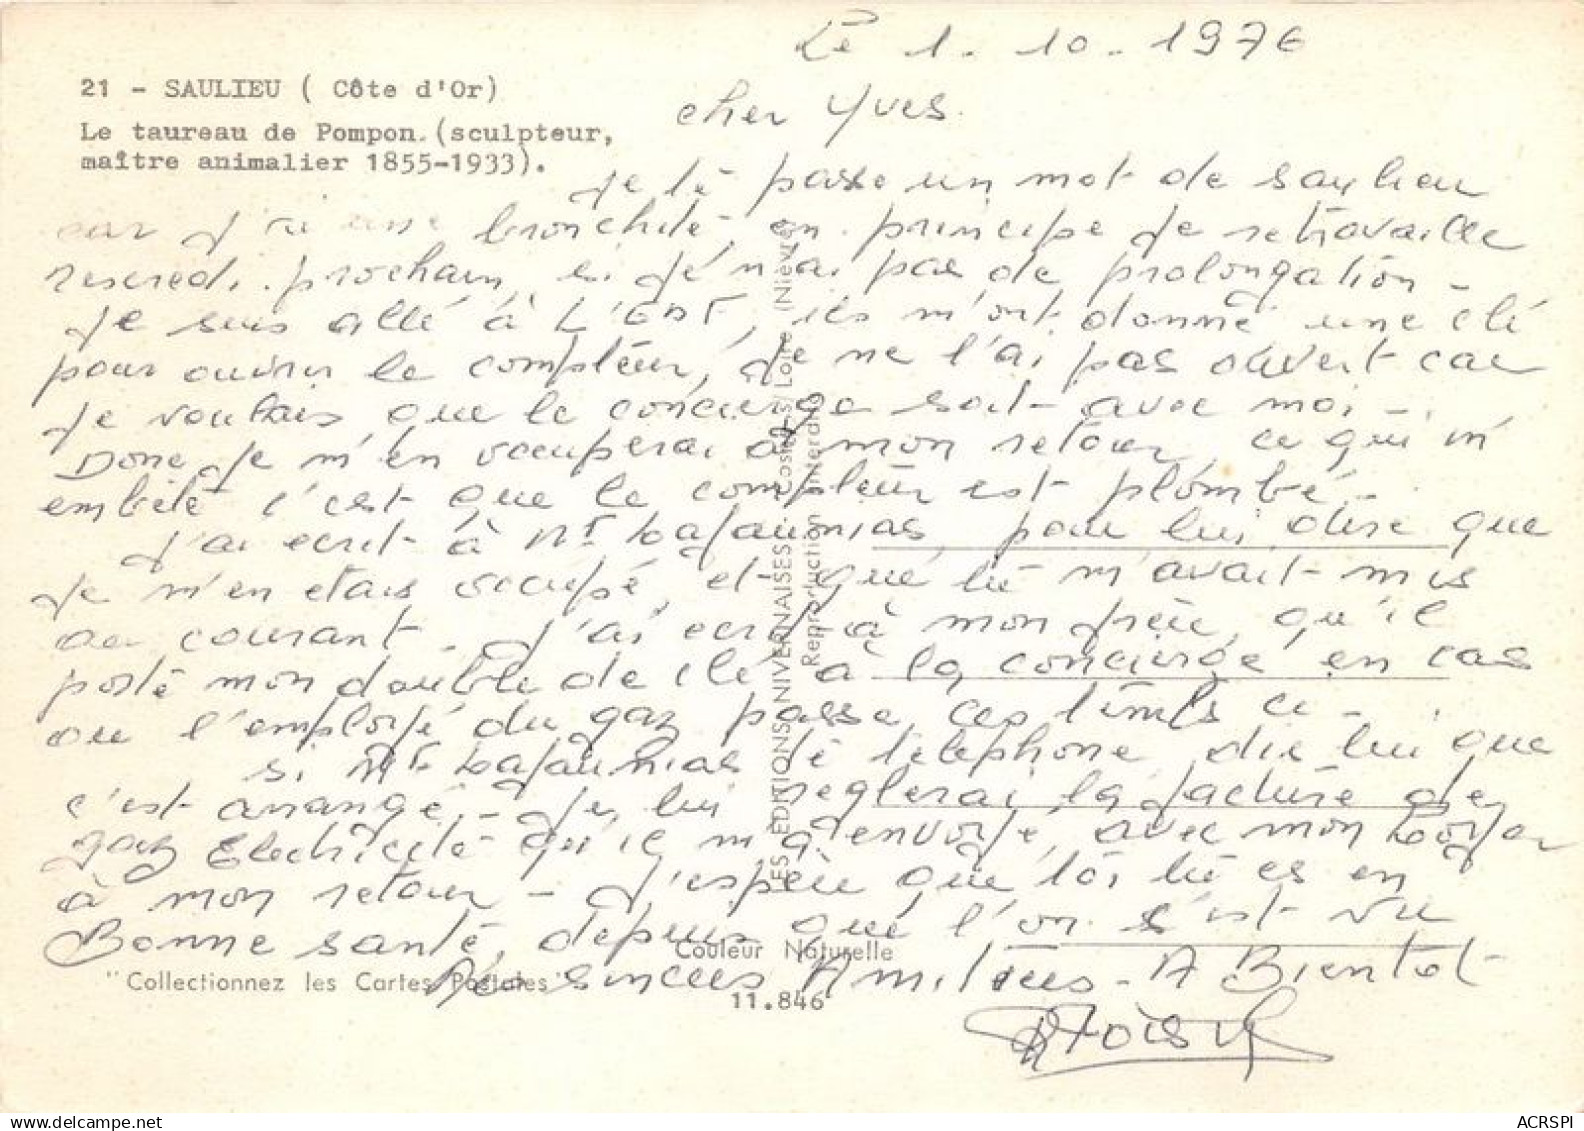 Le 1. 10. 1976
21 - SAULIEU ( Côte d'Or)
Le taureau de Pompon.(sculpteur,
maître animalier 1855-1933).
cher Yves.
je té passe un mot de saulieu
car j'ai une bronchite, en principe je retravaille
prochain, si je n'ai pas de prolongation -
Je suis allé à L'EDF, ils m'ont donné une clé
pour ouvrir le compteur, je ne l'ai pas ouvert car
je voulais que le concierge soit avec moi -
Donc je m'en occuperai à mon retour, ce qui m'
embête c'est que le compteur est plombé -
j'ai ecrit à Mr Lafaurias, pour lui dire que
je m'en etais occupé, et que tu m'avait mis
au courant. J'ai ecrit à mon frère, qu'il
poste mon double de clé à la concierge en cas
ou l'employé du gaz passe, ces temps ci -
si Mr Lafaurias té telephone, dis lui que
c'est arrangé, - Je lui reglerai la facture de
gaz Electricité qu'il m'a envoyé, avec mon Loyer
à mon retour - J'espère que toi tu es en
Bonne santé, depuis que l'on s'est vu
Mes sincères Amitiées - A Bientot
LES EDITIONS NIVERNAISES - Cosne-s/Loire (Nièvre)
Reproduction interdite
Couleur Naturelle
"Collectionnez les Cartes Postales"
11.846
ACRSPI